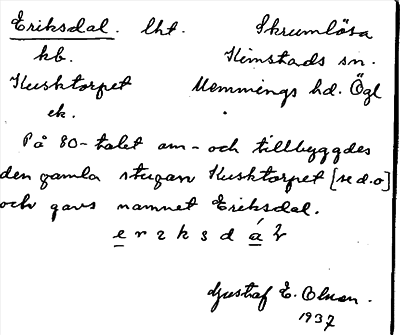 Eriksdal. lht. Skrumlösa
kb. Kimstads sn.
Kusktorpet Memmings hd. Ögl
ek.
På 80-talet om- och tillbyggdes
den gamla stugan Kusktorpet [se d.o]
och gavs namnet Eriksdal.
e r ɩ k s d á ł
Gustaf E. Olsson.
1937